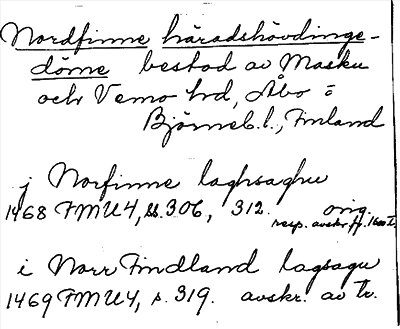 Nordfinne häradshövdinge-
döme bestod av Masku
och Vemo hd, Åbo o
Björneb. l., Finland
j Norfinne laghsaghu
1468 FMU4, ss. 306, 312. orig.
resp. avskr. fr. 1600 t.
i Norr Findland lagsagu
1469 FMU4, s. 319. avskr. av Tr.